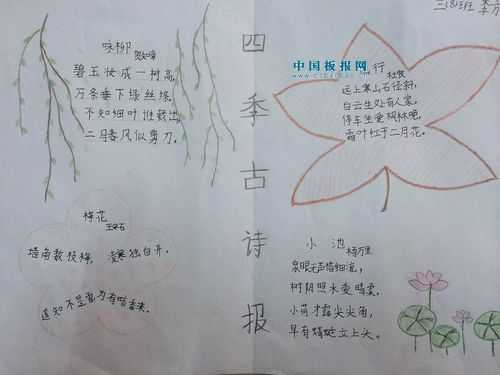 三(8)班
四季古诗报
中国板报网
咏柳
贺知章
碧玉妆成一树高,
万条垂下绿丝绦。
不知细叶谁裁出,
二月春风似剪刀。
山行
杜牧
远上寒山石径斜,
白云生处有人家。
停车坐爱枫林晚,
霜叶红于二月花。
梅花
王安石
墙角数枝梅, 凌寒独自开。
遥知不是雪,为有暗香来。
小池
杨万里
泉眼无声惜细流,
树阴照水爱晴柔。
小荷才露尖尖角,
早有蜻蜓立上头。